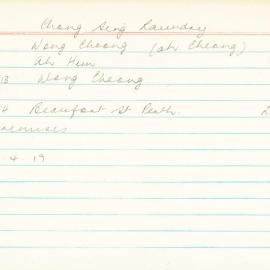 Chong Sing Laundry
Wong Choong (ah Cheong)
Ah Hum
13 Wong Cheong
4 Beaufort St Perth. 2
remises
.4.19